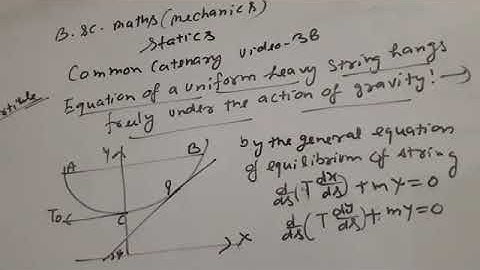 B.Sc. maths (mechanics)
Statics
Common Catenary video-3B
Article
Equation of a uniform heavy string hangs
freely under the action of gravity! →
by the general equation
of equilibrium of string
d/ds (T dx/ds) + mX = 0
d/ds (T dy/ds) + mY = 0
Y
A
B
T₀
C
ψ
X